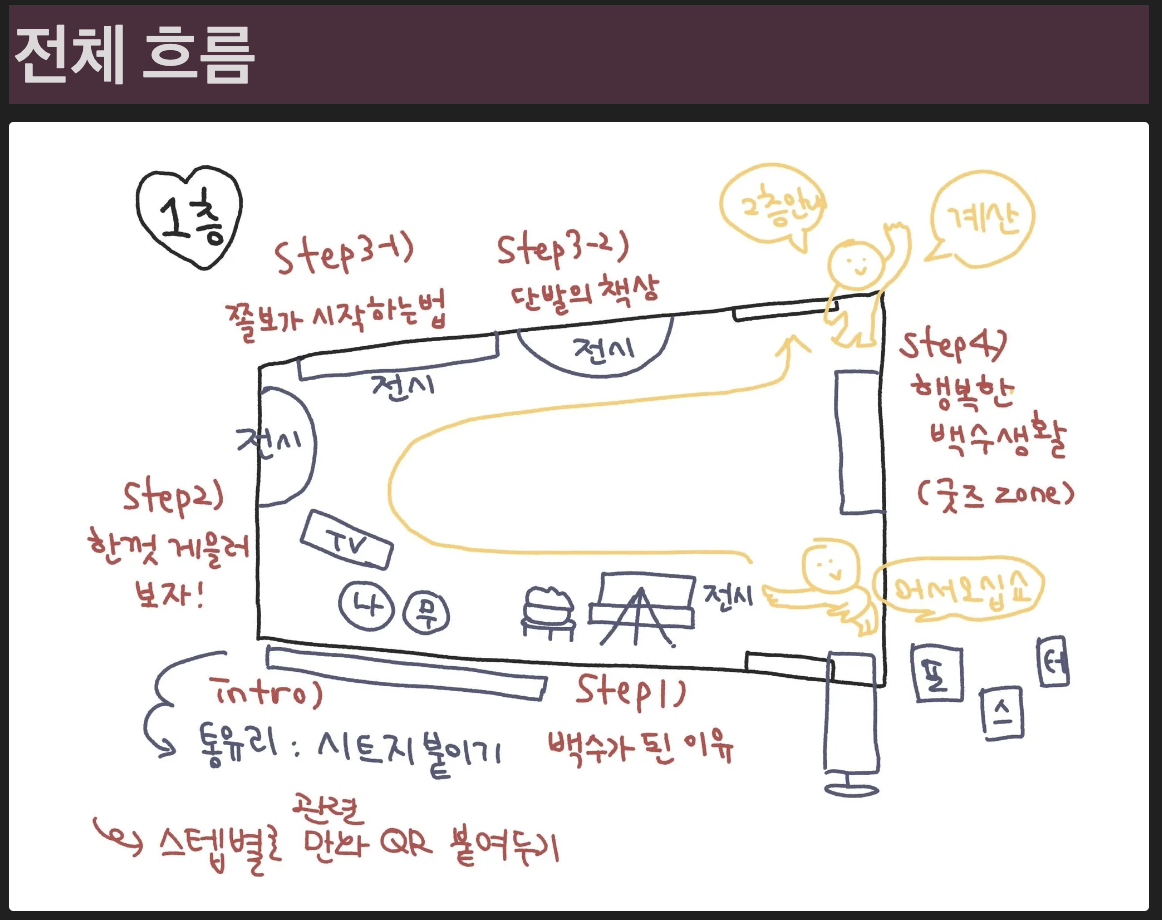 전체 흐름
1층
2층안내
계산
Step3-1)
쫄보가 시작하는법
Step3-2)
단발의 책상
전시
전시
전시
Step4)
행복한
백수생활
(굿즈 zone)
Step2)
한껏 게을러
보자!
TV
나 무
전시
어서오십쇼
포
스
터
intro)
통유리 : 시트지 붙이기
Step1)
백수가 된 이유
관련
스텝별로 만화 QR 붙여두기